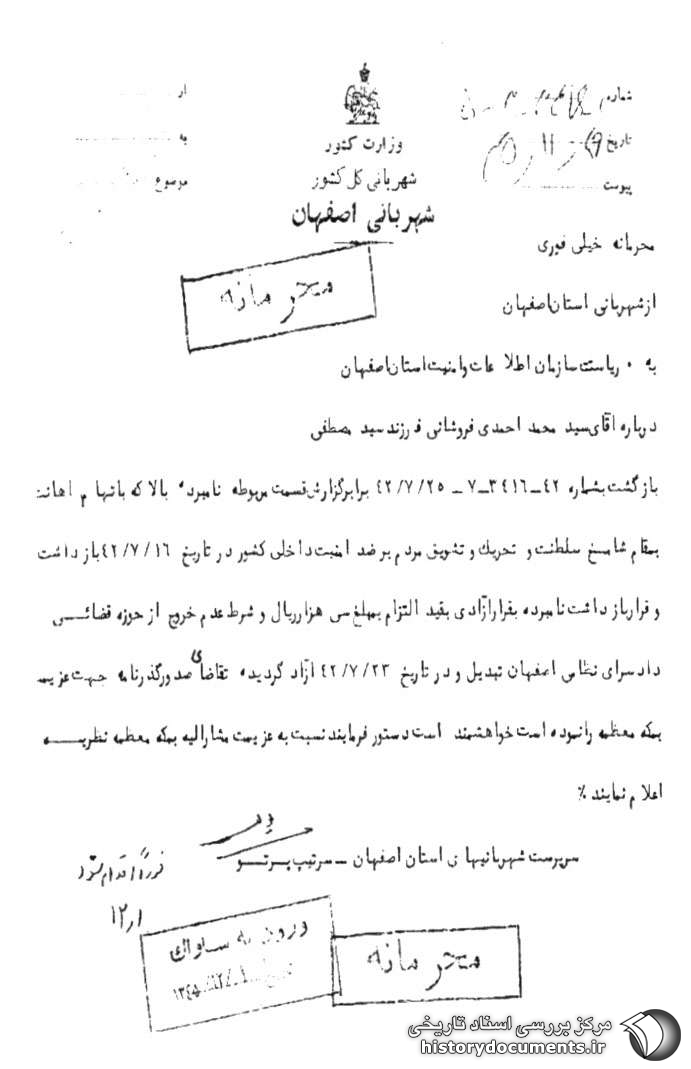 شماره
تاریخ
پیوست
وزارت کشور
شهربانی کل کشور
شهربانی اصفهان
از
به
موضوع
محرمانه خیلی فوری
محرمانه
از شهربانی استان اصفهان
به ۰ ریاست سازمان اطلاعات وامنیت استان اصفهان
درباره آقای سید محمد احمدی فروشانی فرزند سید مصطفی
بازگشت بشماره ۴۲ــ۳۴۱۶ــ۷ ــ ۴۲/۷/۲۵ برابر گزارش قسمت مربوطه نامبرده بالا که باتهام اهانت
بمقام شامخ سلطنت و تحریک و تشویق مردم بر ضد امنیت داخلی کشور در تاریخ ۴۲/۷/۱۶ بازداشت
و قرار بازداشت نامبرده بقرار آزادی بقید التزام بمبلغ سی هزار ریال و شرط عدم خروج از حوزه قضائــی
دادسرای نظامی اصفهان تبدیل و در تاریخ ۴۲/۷/۲۳ آزاد گردیده تقاضای صدور گذرنامه جهت عزیمت
بمکه معظمه را نموده است خواهشمند است دستور فرمایند نسبت به عزیمت مشارالیه بمکه معظمه نظریــه
اعلام نمایند ٪
سرپرست شهربانیهای استان اصفهان ــ سرتیپ پرتــو
فوراً اقدام شود
۱۲/۱
ورود به ساواک
محرمانه
مرکز بررسی اسناد تاریخی
historydocuments.ir